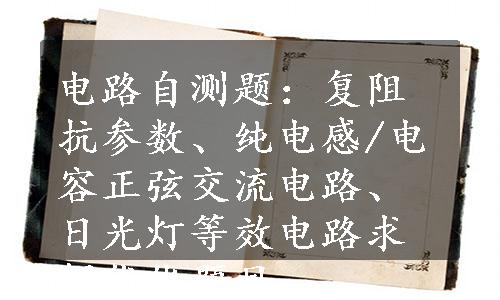 电路自测题：复阻
抗参数、纯电感/电
容正弦交流电路、
日光灯等效电路求